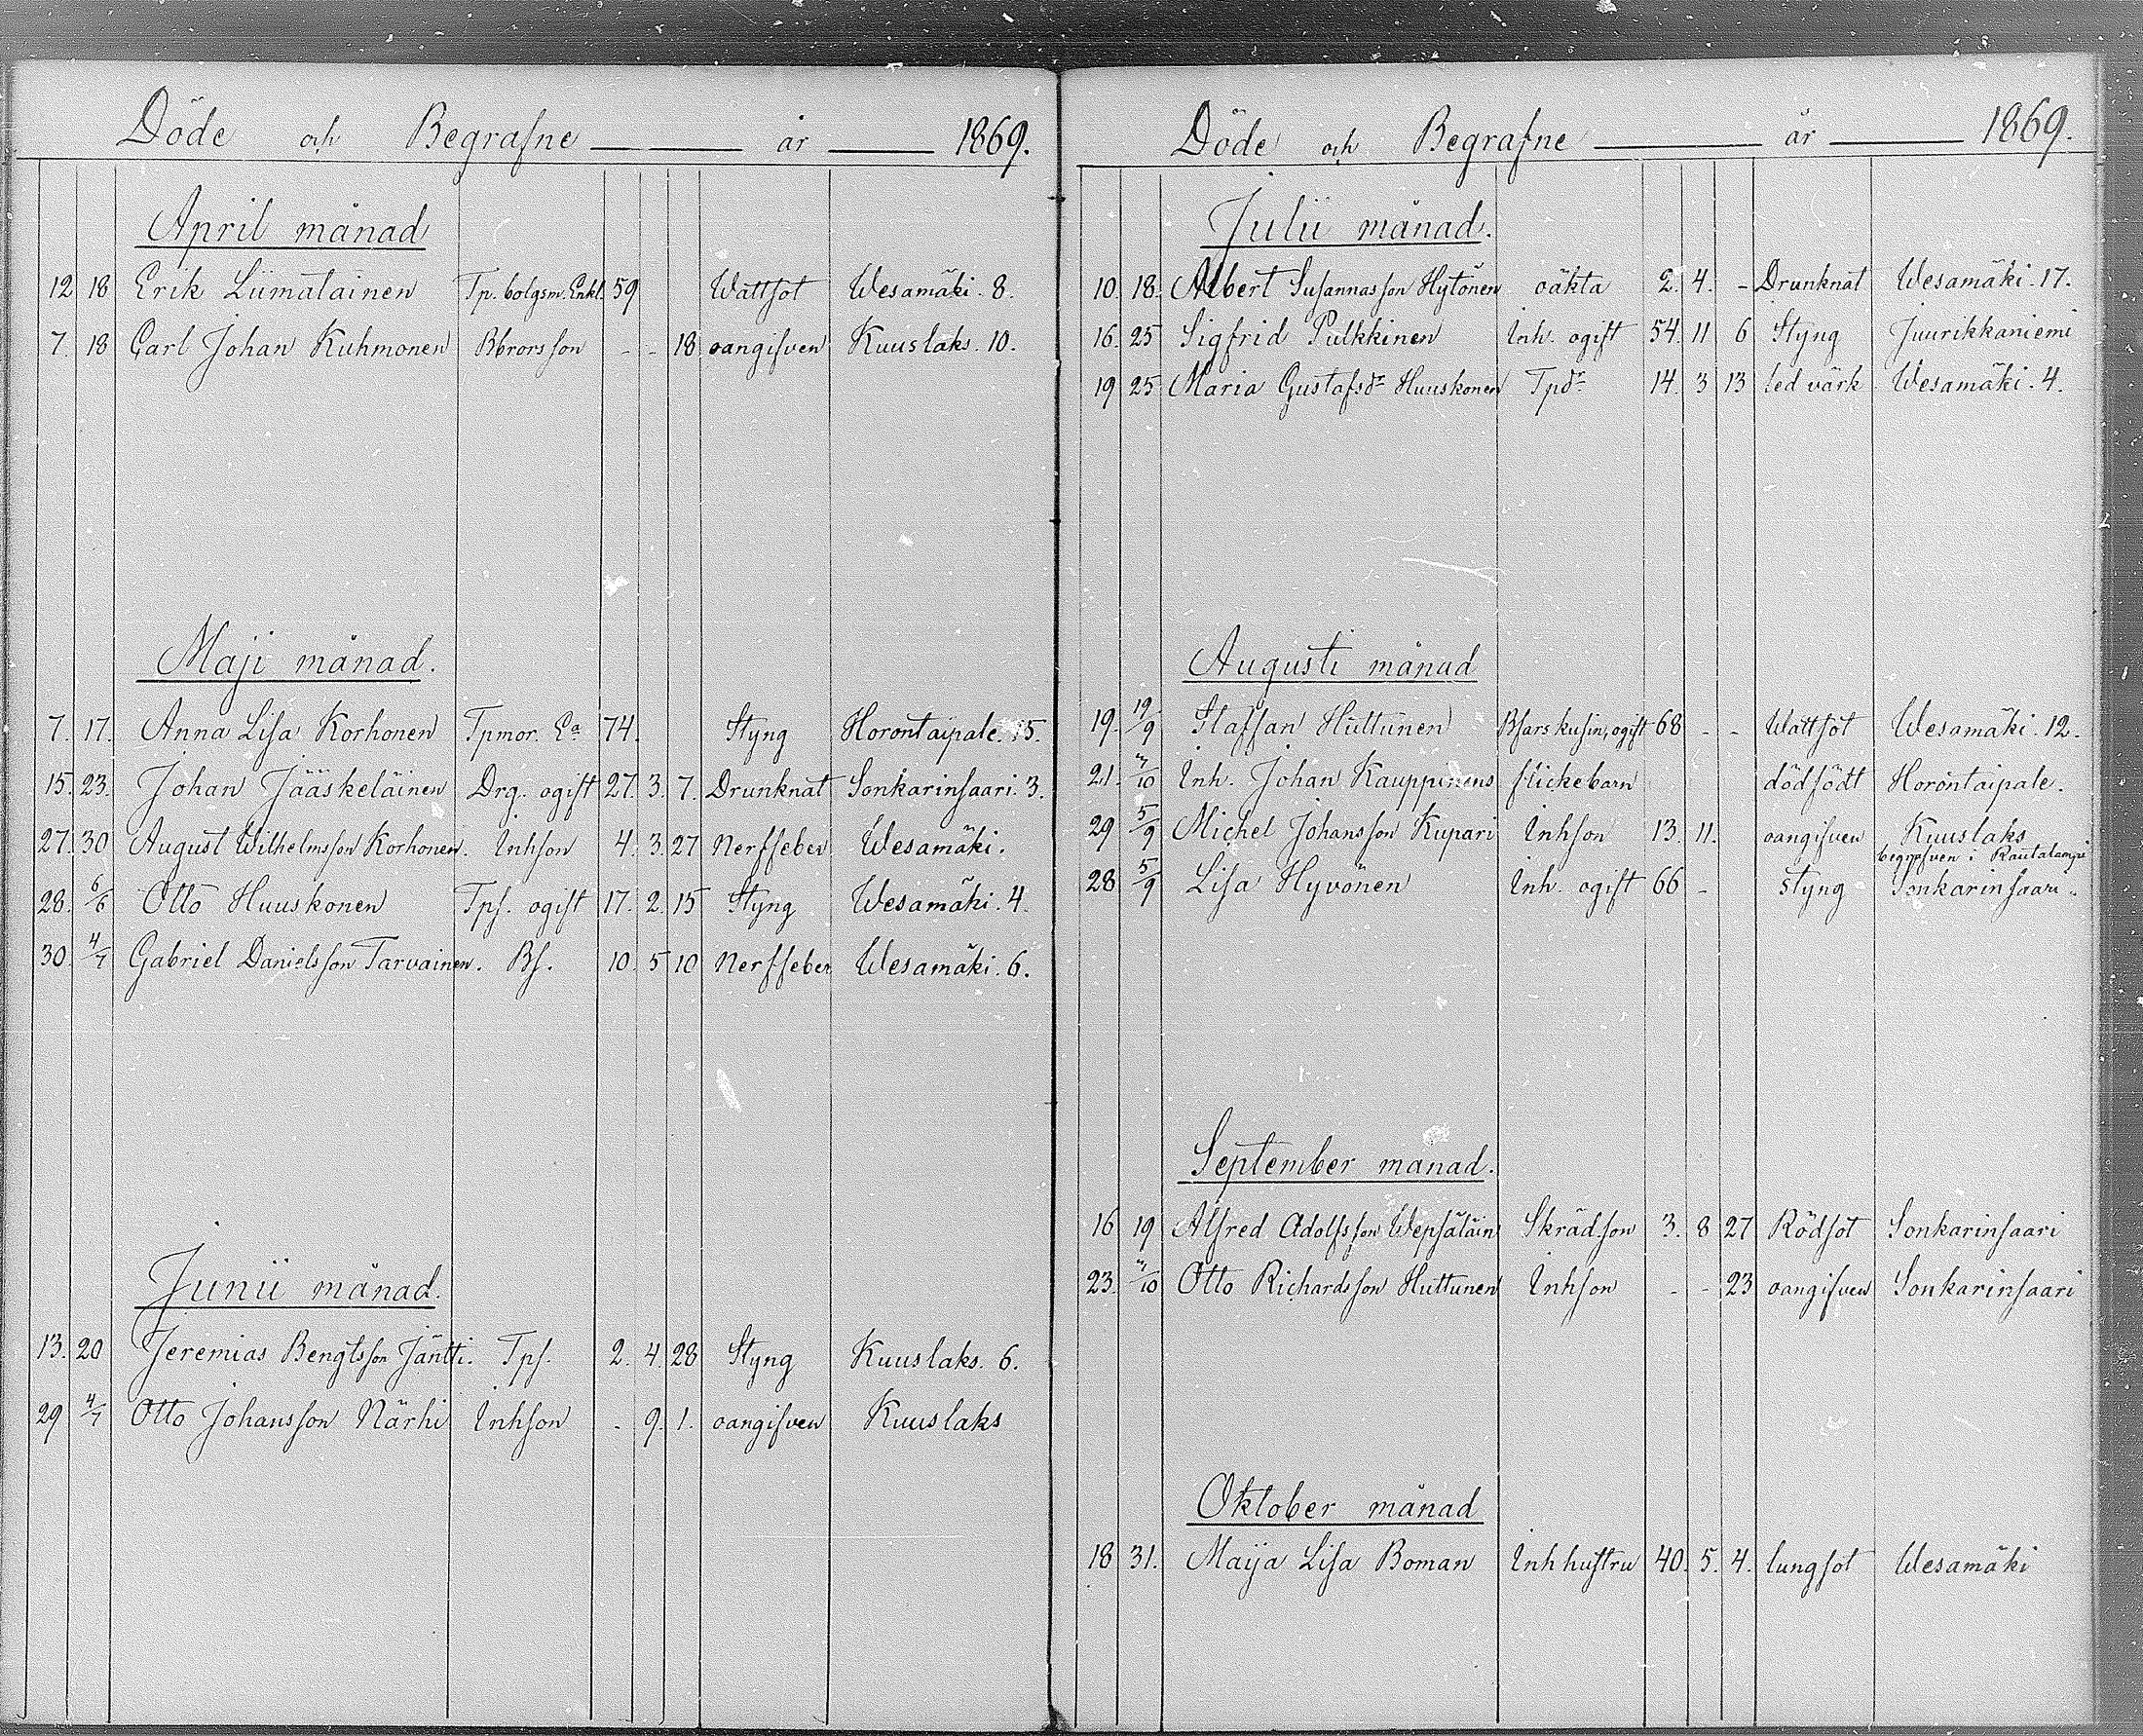 Döde och Begrafne år 1869.
April månad
12 18 Erik Liimatainen Tp. bolgsm. Enkl. 59 Wattsot Wesamäki. 8.
7. 18 Carl Johan Kuhmonen Bbrorsson - - 18 oangifven Kuuslaks. 10.
Maji månad.
7. 17. Anna Lisa Korhonen Tpmor. Ea 74. Styng Horontaipale. 15.
15. 23. Johan Jääskeläinen Drg. ogift 27. 3. 7. Drunknat Sonkarinsaari. 3.
27. 30 August Wilhelmsson Korhonen. Inhson 4. 3. 27 Nerffeber Wesamäki.
28. 6/6 Otto Huuskonen Tps. ogift 17. 2. 15 Styng Wesamäki. 4.
30. 4/7 Gabriel Danielsson Tarvainen. Bs. 10. 5 10 Nerffeber Wesamäki. 6.
Junii månad.
13. 20 Jeremias Bengtsson Jäntti. Tps. 2. 4. 28 Styng Kuuslaks. 6.
29 4/7 Otto Johansson Närhi Inhson - 9. 1. oangifven Kuuslaks
Döde och Begrafne år 1869.
Julii månad.
10. 18. Albert Susannasson Hytönen oäkta 2. 4. - Drunknat Wesamäki. 17.
16. 25 Sigfrid Pulkkinen Inh. ogift 54. 11 6 Styng Juurikkaniemi
19 25 Maria Gustafsdr Huuskonen Tpdr 14. 3 13 led värk Wesamäki. 4.
Augusti månad
19. 19/9 Staffan Huttunen Bfarskusin, ogift 68 - - Wattsot Wesamäki. 12.
21. /10 Inh. Johan Kauppinens flickebarn dödfödt Horontaipale.
29 5/9 Michel Johansson Kupari Inhson 13. 11. oangifven Kuuslaks
begrafven i Rautalampi
28 5/9 Lisa Hyvönen Inh. ogift 66 - styng Sonkarinsaari.
September månad.
16 19 Alfred Adolfsson Wepsäläin Skräd.son 3. 8 27 Rödsot Sonkarinsaari
23. /10 Otto Richardsson Huttunen Inhson - - 23 oangifven Sonkarinsaari
Oktober månad
18 31. Maija Lisa Boman Inhhustru 40. 5. 4. lungsot Wesamäki